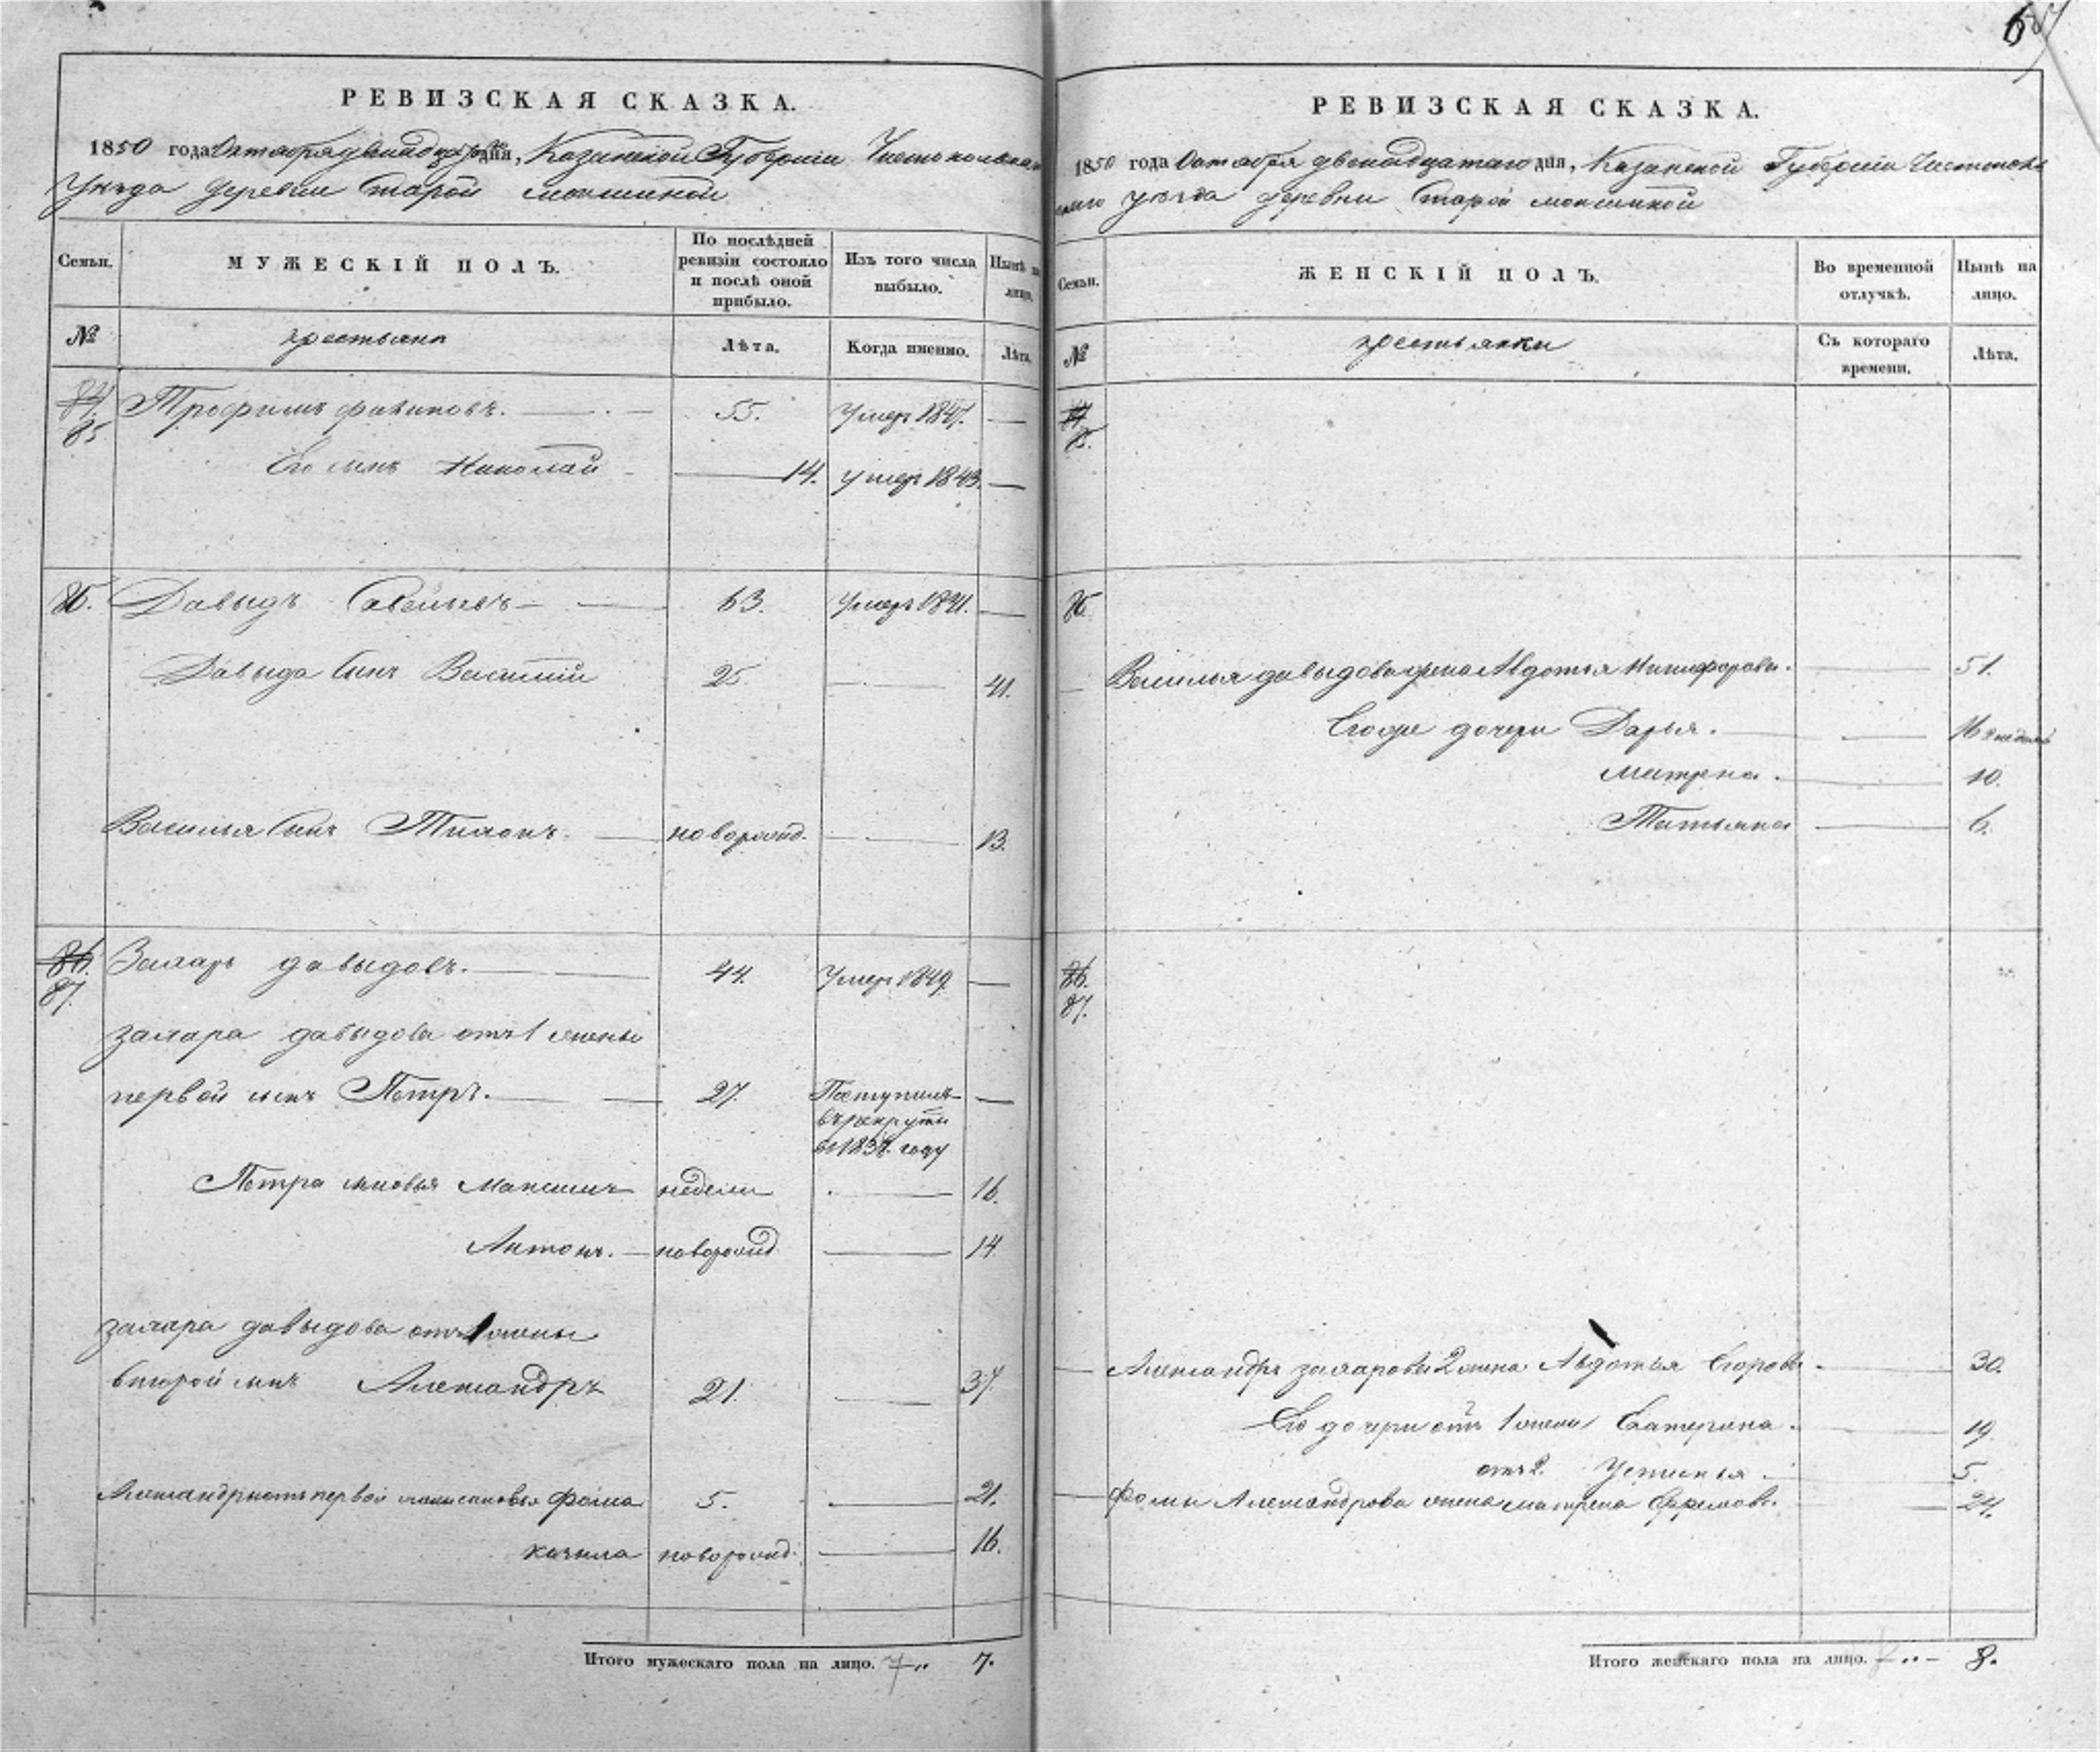 РЕВИЗСКАЯ СКАЗКА.
1850 года Октября двенадцатого дня, Казанской Губернии Чистопольскаго
Уезда деревни Старой мокшиной
Семьи.
МУЖЕСКІЙ ПОЛЪ.
По послѣдней ревизіи состояло и послѣ оной прибыло.
Изъ того числа выбыло.
Нынѣ на лицо.
№
крестьяне
Лѣта.
Когда именно.
Лѣта.
84. 85 Трофимъ 55. Умеръ 1847. —
Его сынъ Николай — 14. Умеръ 1843. —
86. Давыдъ Савельевъ — 63. Умеръ 1841. —
Давыда Сынъ Василий 25 — 41.
Василья Сынъ Тихонъ. — новорожд. — 13.
86. 87. Захаръ давыдовъ. — 44. Умеръ 1849. —
захара давыдова отъ 1 жены
первой сынъ Петръ. — 27. Поступилъ —
въ рекруты
въ году
Петра сыновья Максимъ недели — 16.
Антонъ. — новорожд. — 14.
захара давыдова отъ 1 жены
второй сынъ Александръ 21. — 37.
Александра отъ первой жены сыновья Фома 5. — 21.
новорожд. — 16.
Итого мужескаго пола на лицо. 7 .. 7.
РЕВИЗСКАЯ СКАЗКА.
1850 года Октября двенадцатаго дня, Казанской Губернии Чистополь
скаго уезда деревни Старой мокшиной
Семьи.
ЖЕНСКІЙ ПОЛЪ.
Во временной отлучкѣ.
Нынѣ на лицо.
№
крестьянки
Съ котораго времени.
Лѣта.
84. 85.
86.
— Василья давыдова жена Авдотья Никифорова. — 51.
Его же дочери Дарья. — 16 недель
Матрена. — 10.
Татьяна — 6.
86. 87.
— Александра захарова 2 жена Авдотья Егорова — 30.
Его дочери отъ 1 жены Екатерина. — 19.
отъ 2. Устинья — 5.
— Фомы Александрова жена матрена Ефремова. — 24.
Итого женскаго пола на лицо. 7 .. — 8.